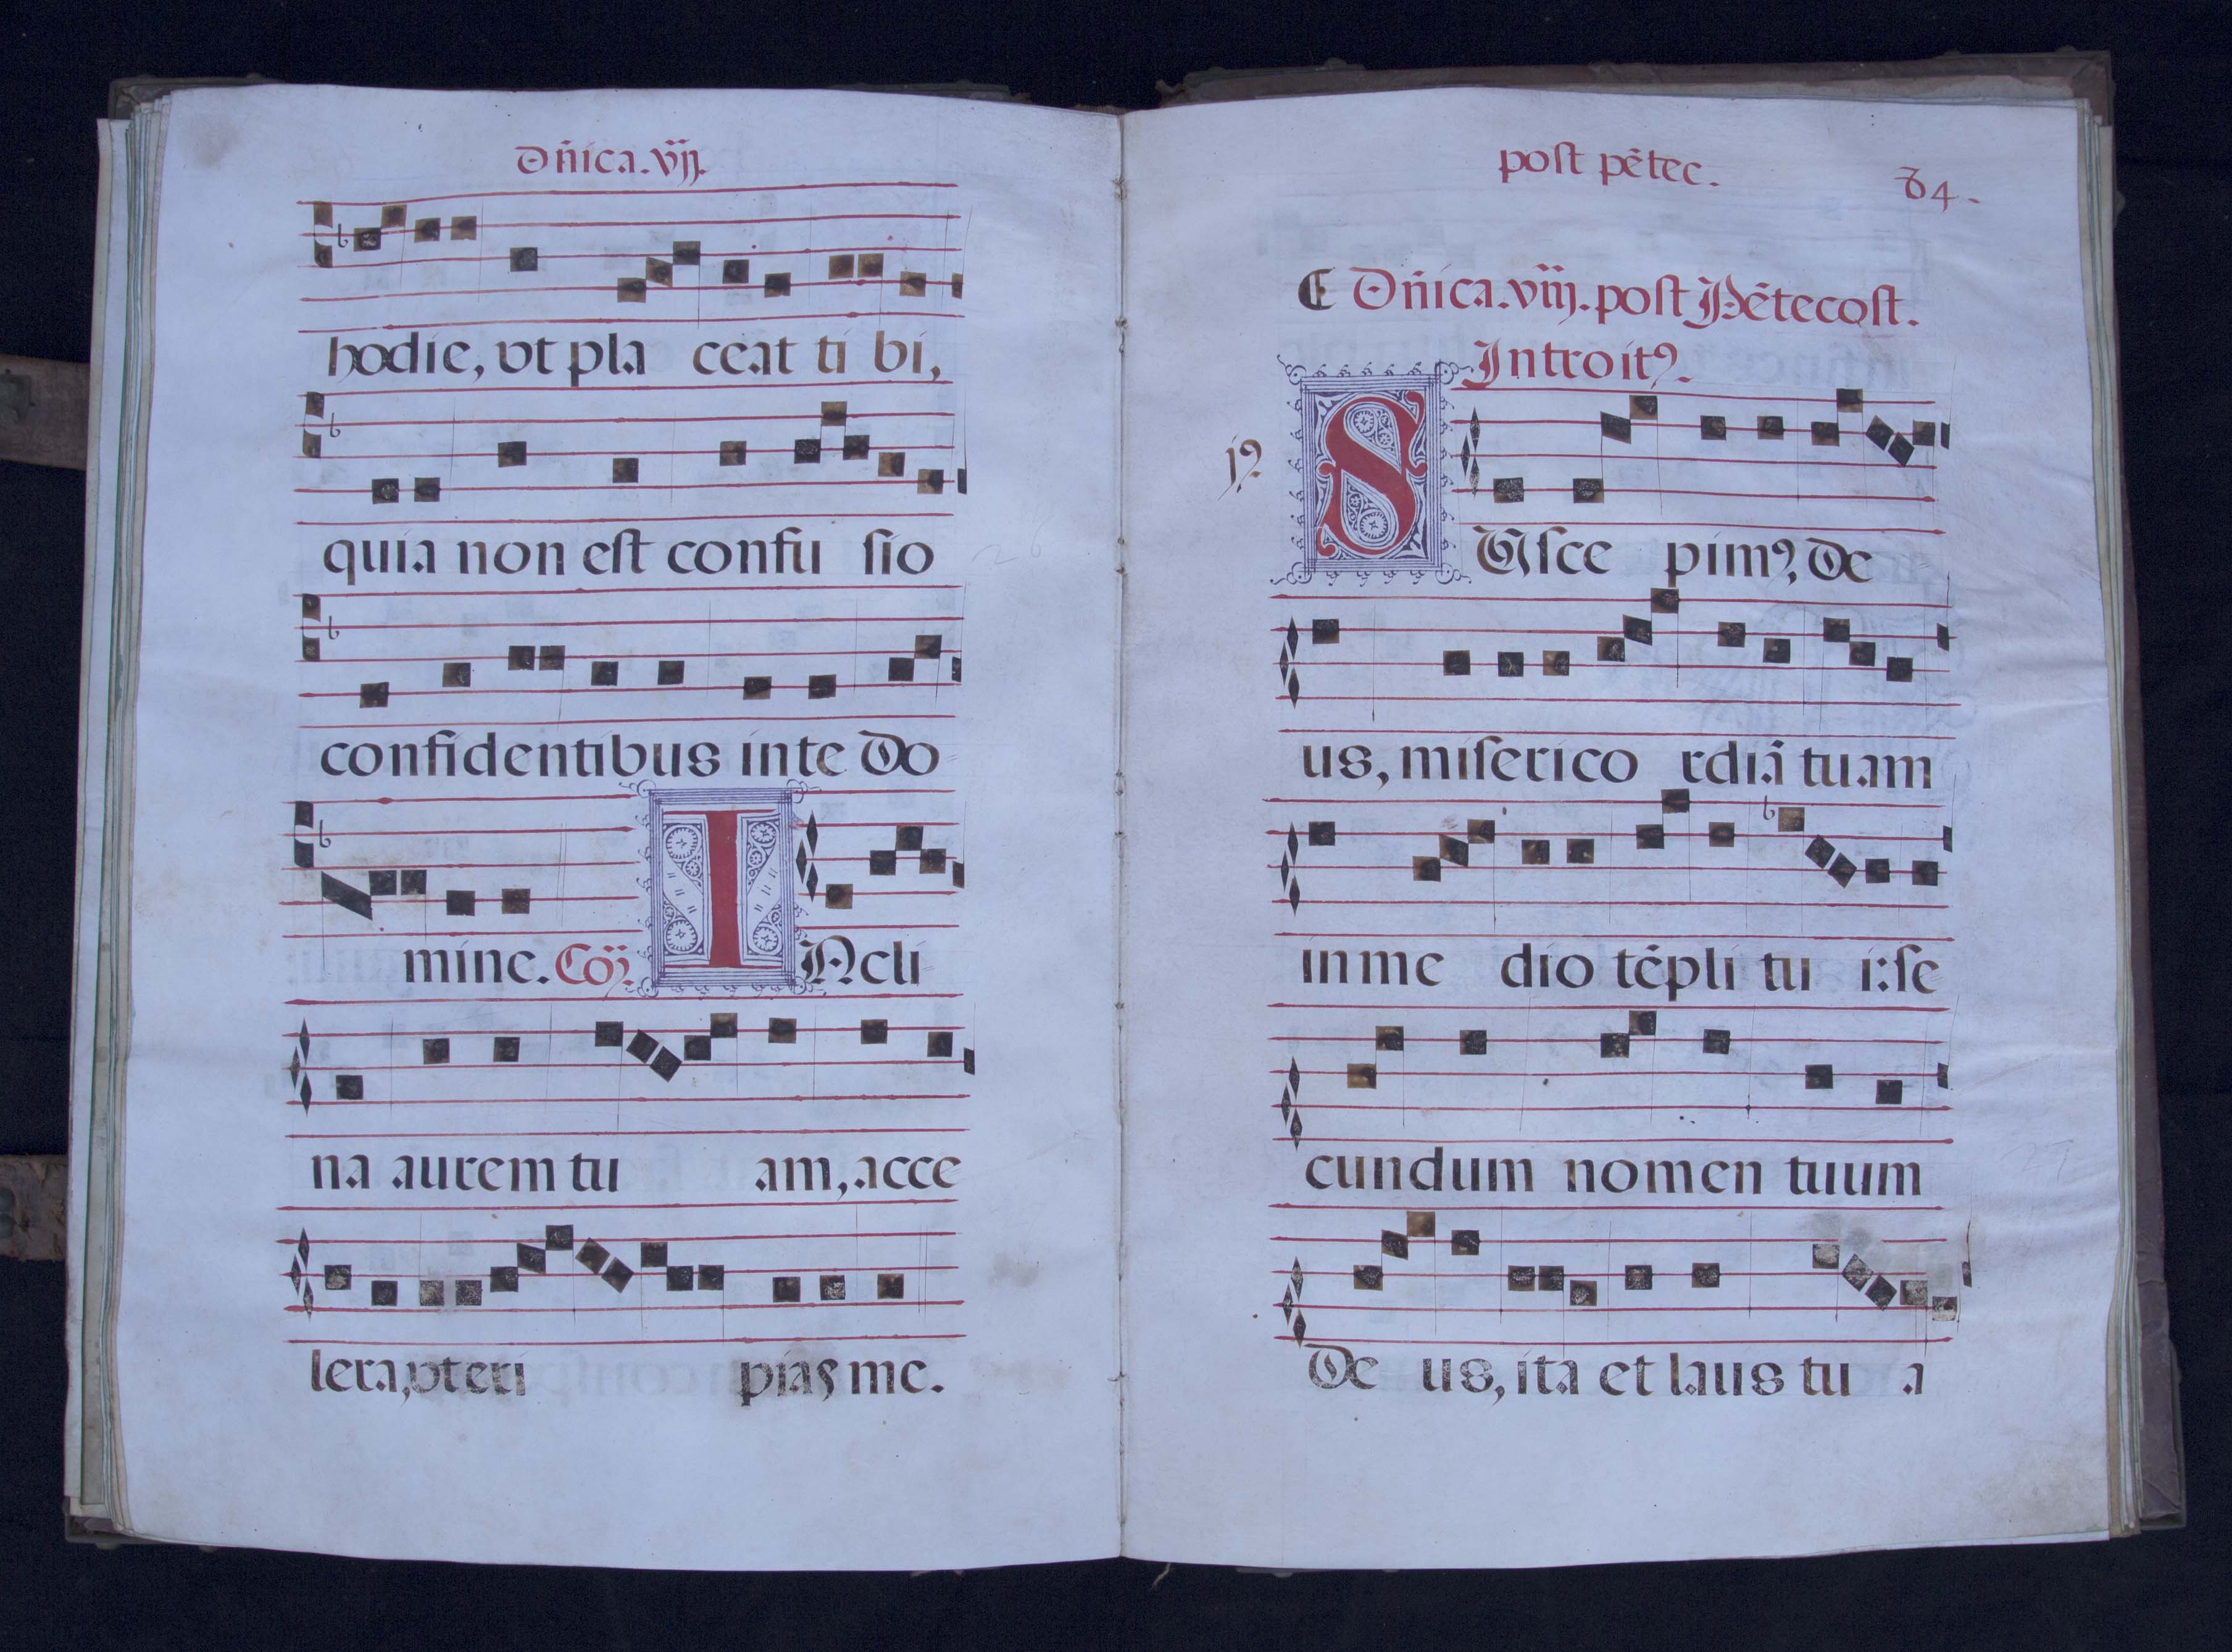 Dñica.vij.
hodie, vt pla ceat ti bi,
quia non est confu sio
confidentibus inte Do
mine. Cõ. I Ncli
na aurem tu am, acce
lera, vt eri pias me.
post pẽtec.
84.
Dñica.viij. post Pẽtecost.
Introitꝰ.
S Vsce pimꝰ, De
us, miserico rdiã tuam
in me dio tẽpli tu i: se
cundum nomen tuum
De us, ita et laus tu a